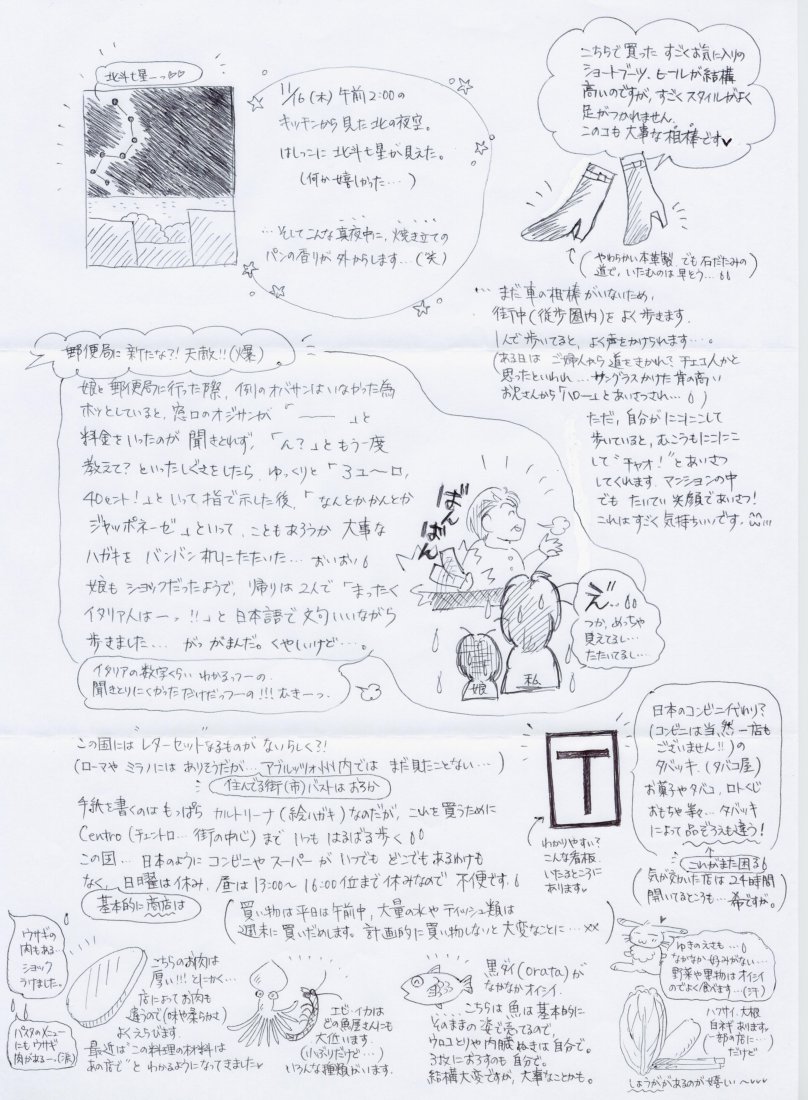 北斗七星ーっ♡♡
11/16(木)午前2:00の
キッチンから見た北の夜空。
はしっこに北斗七星が見えた。
(何か嬉しかった…)
…そしてこんな真夜中に、焼き立ての
パンの香りが外からします…(笑)
こちらで買ったすごくお気に入りの
ショートブーツ、ヒールが結構
高いのですが、すごくスタイルがよく
足がつかれません。
このコも大事な相棒です♥
(やわらかい本革製 でも石だたみの
道で、いたむのは早そう…)
…まだ車の相棒がいないため、
街中(徒歩圏内)をよく歩きます。
1人で歩いてると、よく声をかけられます…。
(ある日はご婦人から道をきかれ?チェコ人かと
思ったといわれ…サングラスかけた背の高い
お兄さんから「ハロー」とあいさつされ…)
ただ、自分がにこにこして
歩いていると、むこうもにこにこ
して"チャオ!"とあいさつ
してくれます。マンションの中
でもたいてい笑顔であいさつ!
これはすごく気持ちいいです。
郵便局に新たな?!天敵!!(爆)
娘と郵便局に行った際、例のオバサンはいなかった為
ホッとしていると、窓口のオジサンが「――」と
料金をいったのが聞きとれず、「ん?」ともう一度
教えて?といったしぐさをしたら、ゆっくりと「3ユ〜ロ,
40セント!」といって指で示した後、「なんとかかんとか
ジャッポネーゼ」といって、こともあろうか大事な
ハガキをバンバン机にたたいた…おいおい
娘もショックだったようで、帰りは2人で「まったく
イタリア人はーっ!!」と日本語で文句いいながら
歩きました…がっがまんだ。くやしいけど…。
ばんばん
娘
私
つか、めっちゃ
見えてるし…
たたいてるし…
イタリアの数字くらいわかるっつーの。
聞きとりにくかっただけだっつーの!!!むきーっ。
この国には"レターセット"なるものがないらしく?!
(ローマやミラノにはありそうだが…アブルッツォ州内ではまだ見たことない…)
住んでる街(市)バストはおろか
手紙を書くのはもっぱらカルトリーナ(絵ハガキ)なのだが、これを買うために
Centro(チェントロ…街の中心)までいつもはるばる歩く
この国…日本のようにコンビニやスーパーがいつでもどこでもあるわけも
なく、日曜は休み、昼は13:00〜16:00位まで休みなので不便です。
基本的に商店は
(買い物は平日は午前中、大量の水やティッシュ類は
週末に買いだめします。計画的に買い物しないと大変なことに…××)
T
わかりやすい?
こんな看板
いたるところに
あります♥
日本のコンビニ代わり?
(コンビニは当然一店も
ございません!!)の
タバッキ。(タバコ屋)
お菓子やタバコ、ロトくじ
おもちゃ等々…タバッキ
によって品ぞろえも違う!
これがまた困る
(気が効いた店は24時間
開いてるところも…希ですが。)
ウサギの
肉もある…
ショック
うけました。
パスタのメニュー
にもウサギ
肉がある…(涙)
こちらのお肉は
厚い!!!とにかく…
店によってお肉も
違うので(味や柔らかさ)
よくえらびます。
最近は"この料理の材料は
あの店で"とわかるようになってきました♥
エビ・イカは
どの魚屋さんにも
大体います。
(いぶりだけど…)
いろんな種類がいます。
黒ダイ(orata)が
なかなかオイシイ。
…こちらは魚は基本的に
そのままの姿で売てるので、
ウロコとりや内臓ぬきは自分で。
3枚におろすのも自分で。
結構大変ですが、大事なことかも。
ゆきのえさも…
なかなか好みがない…
野菜や果物はオイシイ
のでよく食べます…(汗)
ハクサイ、大根
白ネギあります。
(一部の店に…)
だけど
しょうががあるのが嬉しい〜♥♥♥